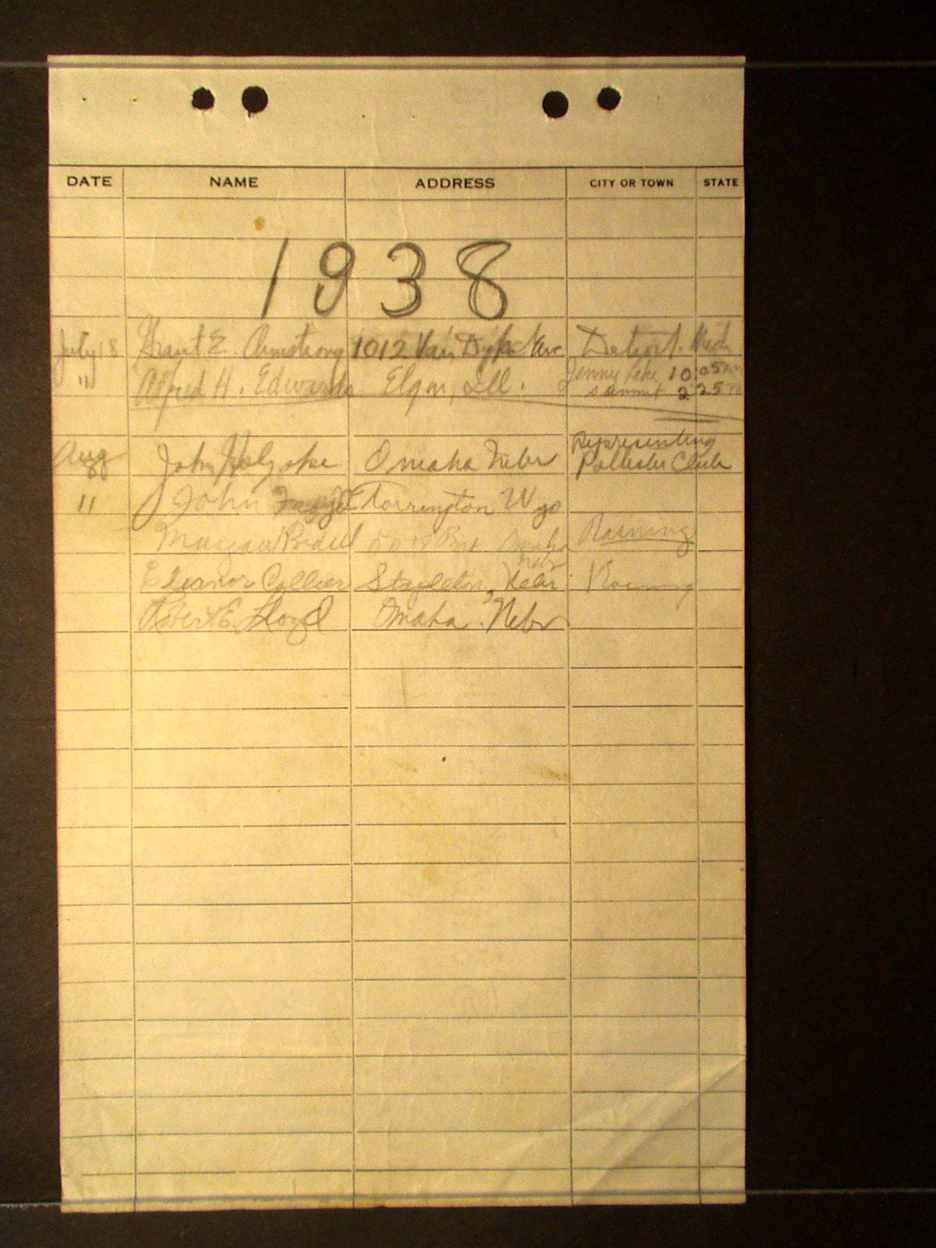 DATE NAME ADDRESS CITY OR TOWN STATE
1938
July 18 Grant E. Armstrong 1012 Van Dyke Ave Detroit. Mich
" Alfred H. Edwards Elgin, Ill. Jenny Lake 10 05 AM
summit 2 25
Aug 8 John Holyoke Omaha Nebr Representing
Pallister Club
" John Torrington Wyo
Omaha Raining
Nebr
Eleanor Collier Stapleton, Nebr Raining
Robert E. Lloyd Omaha. Nebr